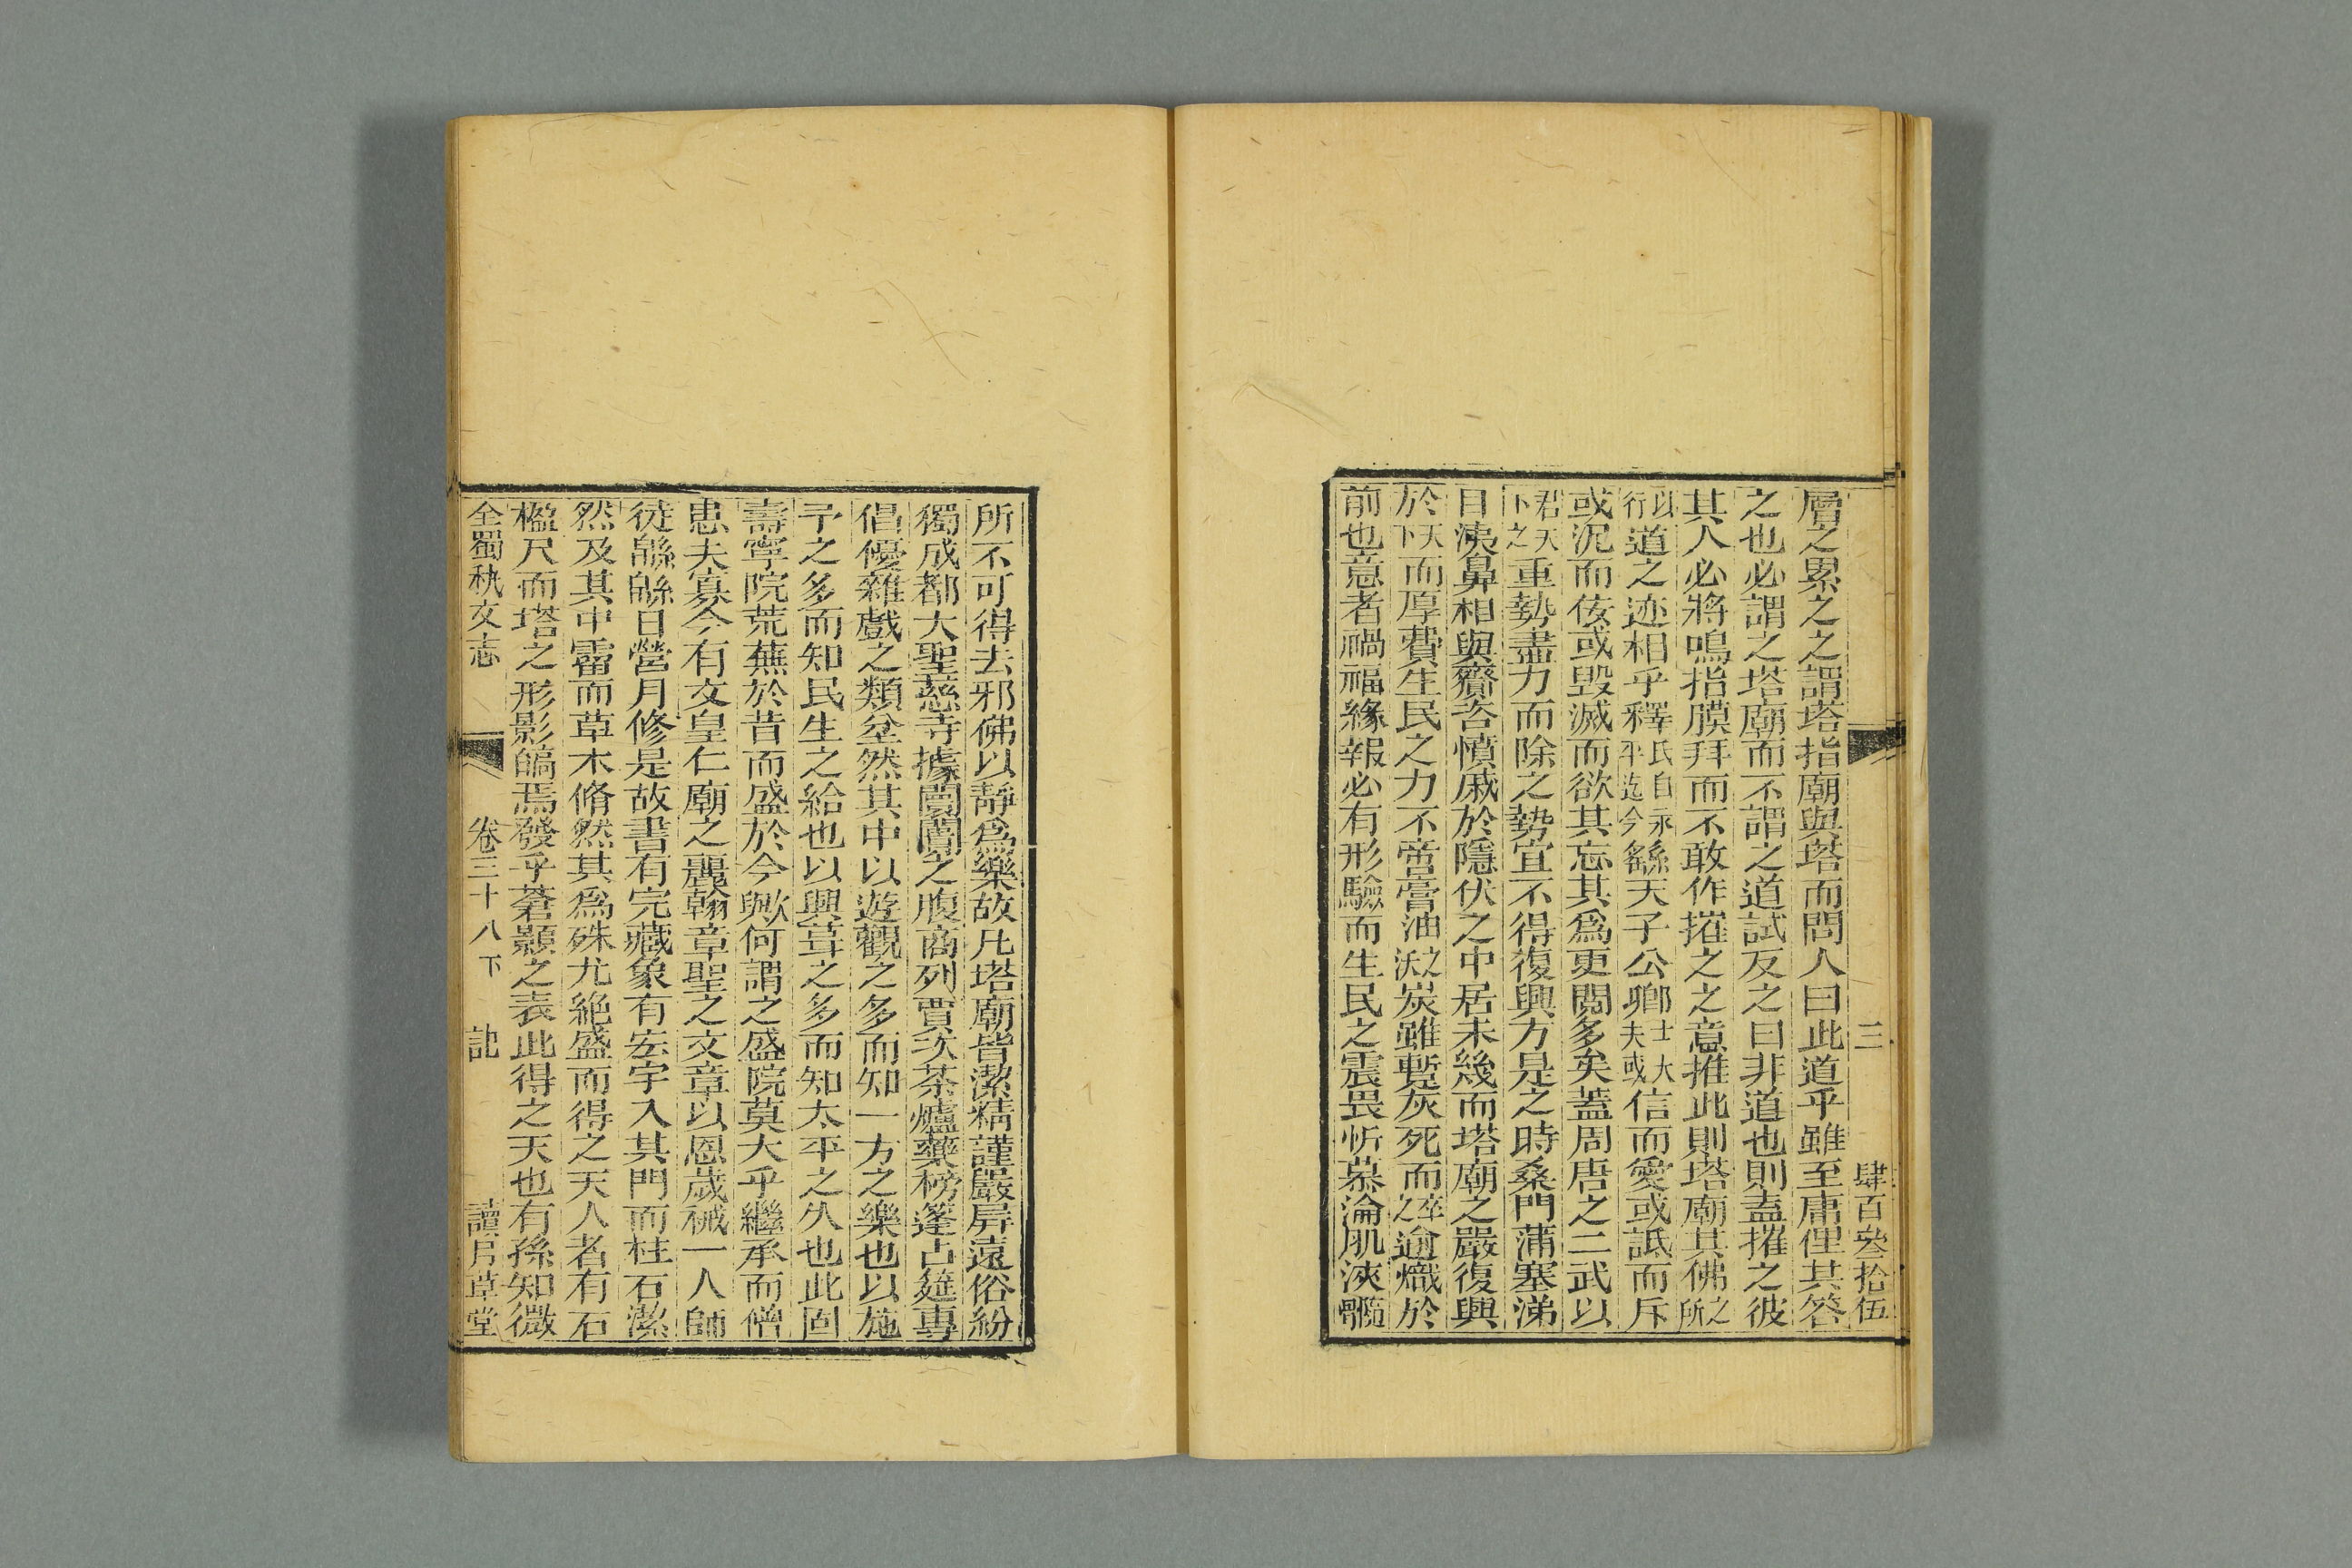 三 肆百叄拾伍
層之累之之謂塔指廟與塔而問人曰此道乎雖至庸俚其答
之也必謂之塔廟而不謂之道試反之曰非道也則盍摧之彼
其人必將鳴指膜拜而不敢作摧之之意推此則塔廟其佛之所
以行道之迹相乎釋氏自永平迄今繇天子公卿士大夫或信而愛或詆而斥
或沉而侫或毀滅而欲其忘其爲更閱多矣蓋周唐之二武以
君天下之重勢盡力而除之勢宜不得復興方是之時桑門蒲塞涕
目洟鼻相與齎咨憤戚於隱伏之中居未幾而塔廟之嚴復興
於天下而厚費生民之力不啻膏油之沃炭雖暫灰死而卒之逾熾於
前也意者禍福緣報必有形驗而生民之震畏忻慕淪肌浹髓
所不可得去邪佛以靜爲樂故凡塔廟皆潔精謹嚴屏遠俗紛
獨成都大聖慈寺據闤闠之腹商列賈次茶爐藥榜篷占筵專
倡優雜戲之類坌然其中以遊觀之多而知一方之樂也以施
予之多而知民生之給也以興葺之多而知太平之久也此固
壽寧院荒蕪於昔而盛於今歟何謂之盛院莫大乎繼承而僧
患夫寡今有文皇仁廟之麗翰章聖之文章以恩歲祴一人師
徒緜緜日營月修是故書有完藏象有宏宇入其門而柱石潔
然及其中霤而草木脩然其爲殊尤絶盛而得之天人者有石
楹尺而塔之形影皜焉發乎蒼顥之表此得之天也有孫知微
全蜀秇文志 卷三十八下 記 讀月草堂